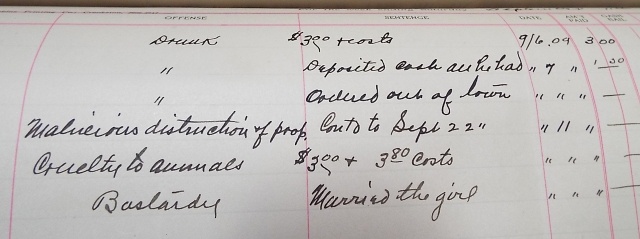 OFFENSE SENTENCE DATE AM'T PAID CASH BAIL
Drunk $3.00 + costs 9/6.09 3.00
" Deposited cash all he had " 7 " 1.20
" Ordered out of town " " " —
Malicious distruction of prop. Contd to Sept 22" " 11 " —
Cruelty to animals $3.00 + 3.80 costs " " "
Bastardy Married the girl " " " —